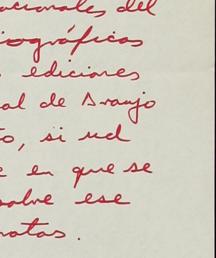 nacionales del
iográficas
ediciones
al de Araujo
to, si ud
e en que se
solve ese
notas.